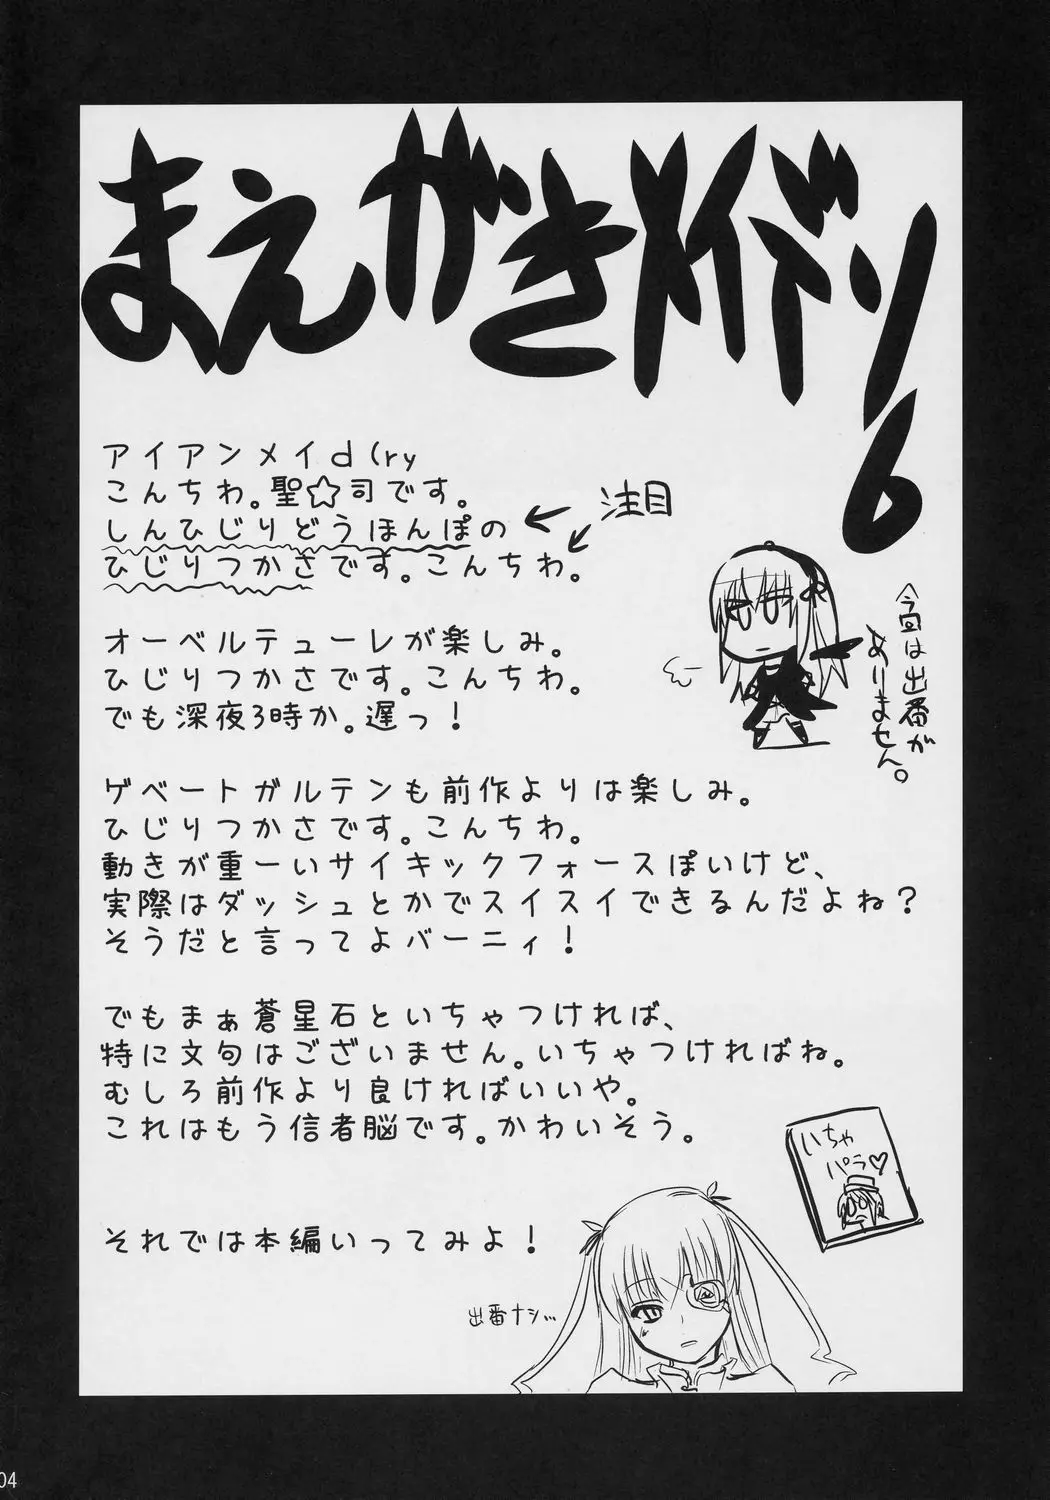 まえがきメイドリ6
アイアンメイd(ry
こんちわ。聖☆司です。
しんひじりどうほんぽの
ひじりつかさです。こんちわ。
注目
オーベルテューレが楽しみ。
ひじりつかさです。こんちわ。
でも深夜3時か。遅っ！
今回は出番が
ありません。
ゲベートガルテンも前作よりは楽しみ。
ひじりつかさです。こんちわ。
動きが重ーいサイキックフォースぽいけど、
実際はダッシュとかでスイスイできるんだよね？
そうだと言ってよバーニィ！
でもまぁ蒼星石といちゃつければ、
特に文句はございません。いちゃつければね。
むしろ前作より良ければいいや。
これはもう信者脳です。かわいそう。
いちゃ
パラ♡
それでは本編いってみよ！
出番ナシ…
04